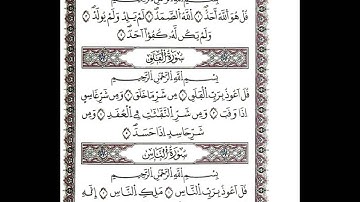 قُلْ هُوَ ٱللَّهُ أَحَدٌ ۝ ٱللَّهُ ٱلصَّمَدُ ۝ لَمْ يَلِدْ وَلَمْ يُولَدْ ۝
وَلَمْ يَكُن لَّهُۥ كُفُؤًا أَحَدٌ ۝
سُورَةُ الْفَلَقِ
بِسْمِ ٱللَّهِ ٱلرَّحْمَٰنِ ٱلرَّحِيمِ
قُلْ أَعُوذُ بِرَبِّ ٱلْفَلَقِ ۝ مِن شَرِّ مَا خَلَقَ ۝ وَمِن شَرِّ غَاسِقٍ
إِذَا وَقَبَ ۝ وَمِن شَرِّ ٱلنَّفَّٰثَٰتِ فِى ٱلْعُقَدِ ۝ وَمِن
شَرِّ حَاسِدٍ إِذَا حَسَدَ ۝
سُورَةُ النَّاسِ
بِسْمِ ٱللَّهِ ٱلرَّحْمَٰنِ ٱلرَّحِيمِ
قُلْ أَعُوذُ بِرَبِّ ٱلنَّاسِ ۝ مَلِكِ ٱلنَّاسِ ۝ إِلَٰهِ